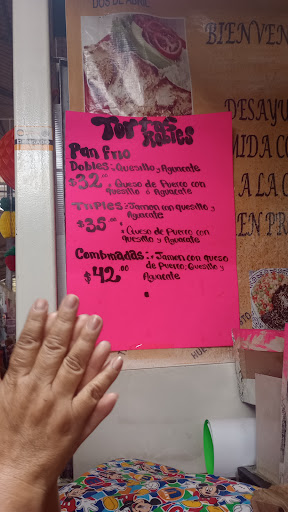 DOS DE ABRIL
BIENVEN
Tortas
Nobles
Pan frio
DESAYU
Dobles: Quesillo y Aguacate
MIDA CO
$32.00 • Queso de Puerco con
quesillo ó Aguacate
A LA C
Triples: Jamon con quesillo y
Aguacate
EN PR
$35.00 • Queso de Puerco con
quesillo y Aguacate
Combinadas: • Jamon con queso
de Puerco, Quesillo y
Aguacate
$42.00